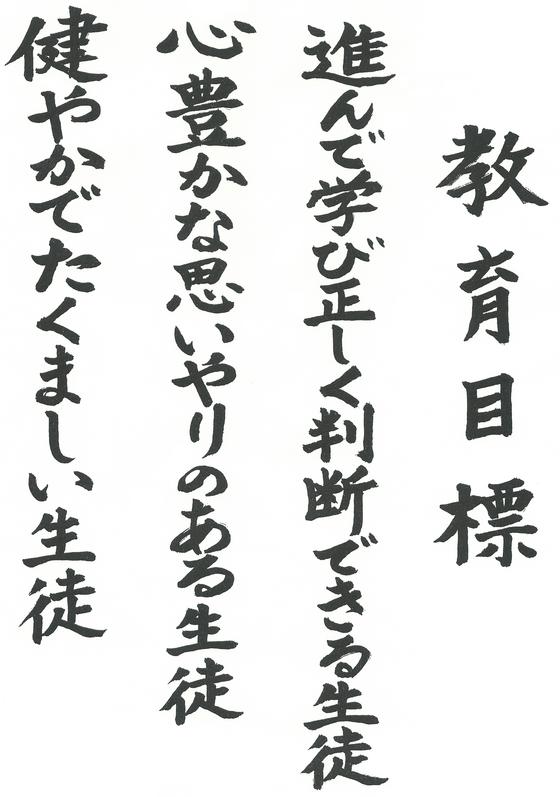 教育目標
進んで学び正しく判断できる生徒
心豊かな思いやりのある生徒
健やかでたくましい生徒